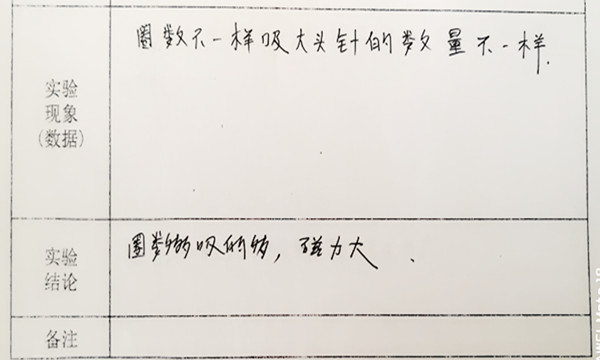 圈数不一样吸大头针的数量不一样.
实验
现象
(数据)
圈数多吸的多，磁力大.
实验
结论
备注